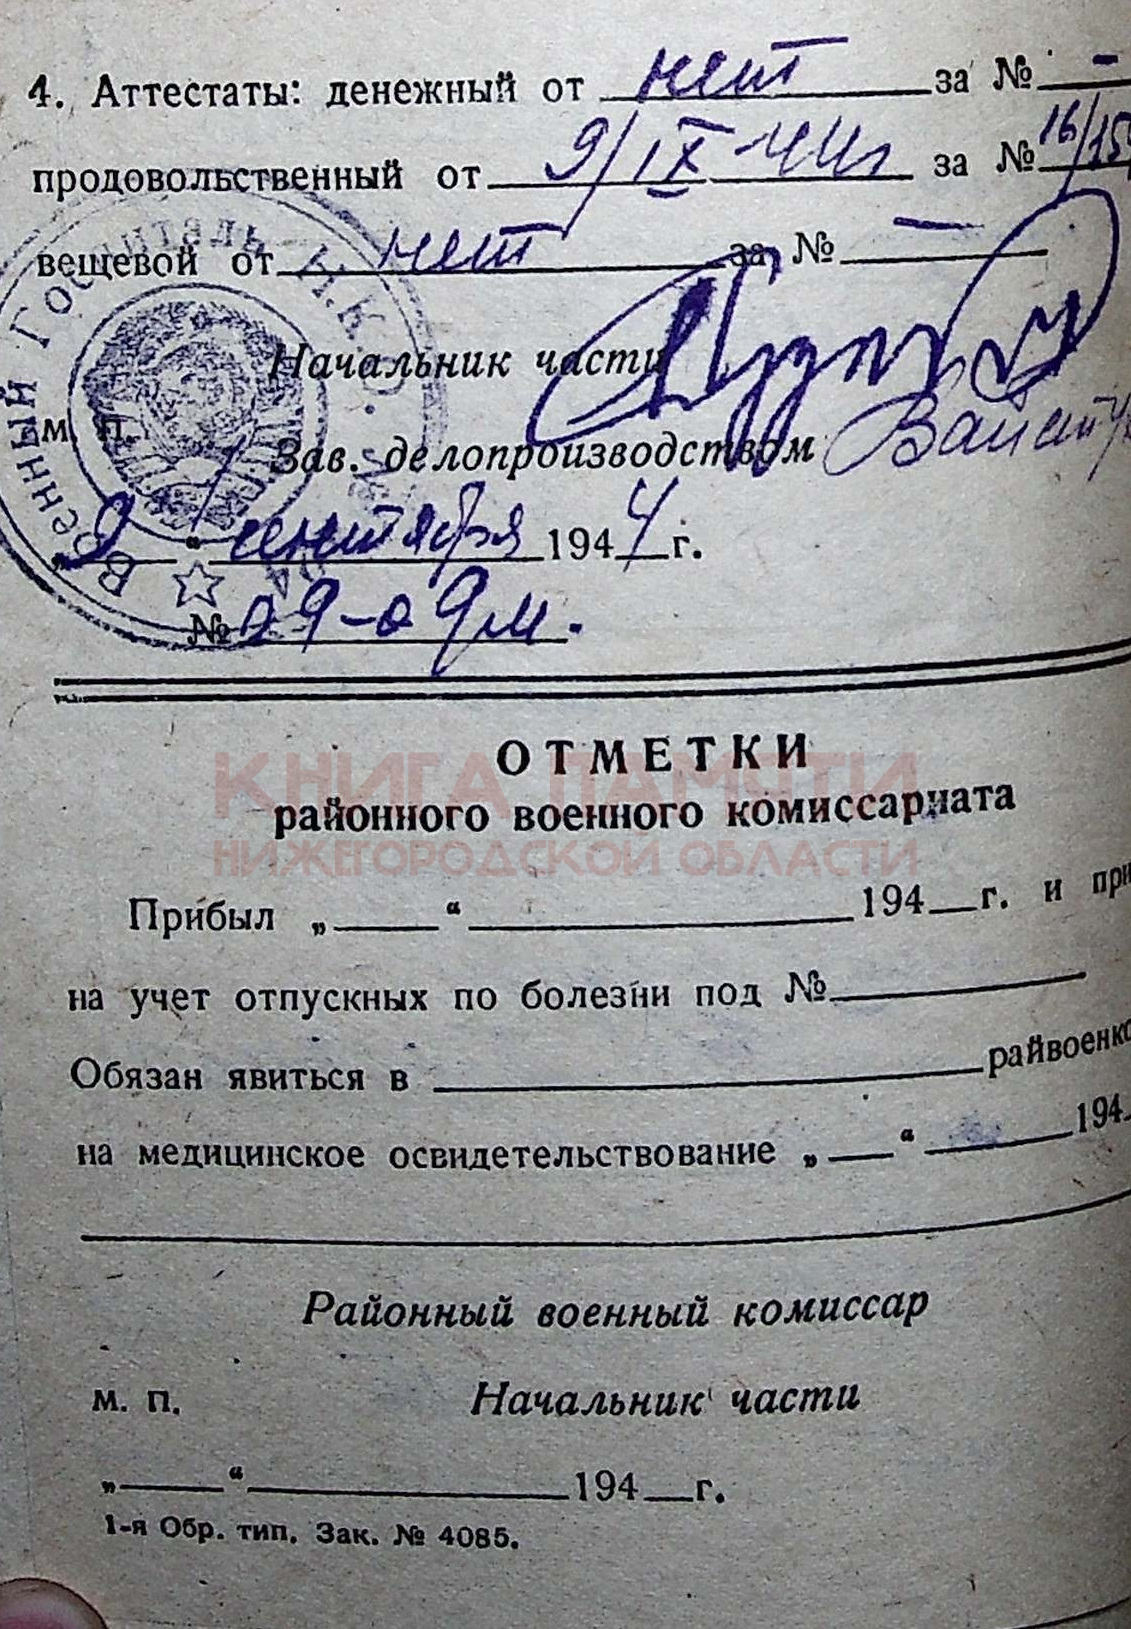 4. Аттестаты: денежный от нет за № –
продовольственный от 9/IX–44г за № 16/15
вещевой от нет за № —
Военный Госпиталь Н.К.О.
Начальник части
м. п.
Зав. делопроизводством
„9“ сентября 1944 г.
№
ОТМЕТКИ
КНИГА ПАМЯТИ
районного военного комиссариата
НИЖЕГОРОДСКОЙ ОБЛАСТИ
Прибыл „ “ 194 г. и при
на учет отпускных по болезни под №
Обязан явиться в райвоенко
на медицинское освидетельствование „ “ 194
Районный военный комиссар
м. п. Начальник части
„ “ 194 г.
1-я Обр. тип. Зак. № 4085.